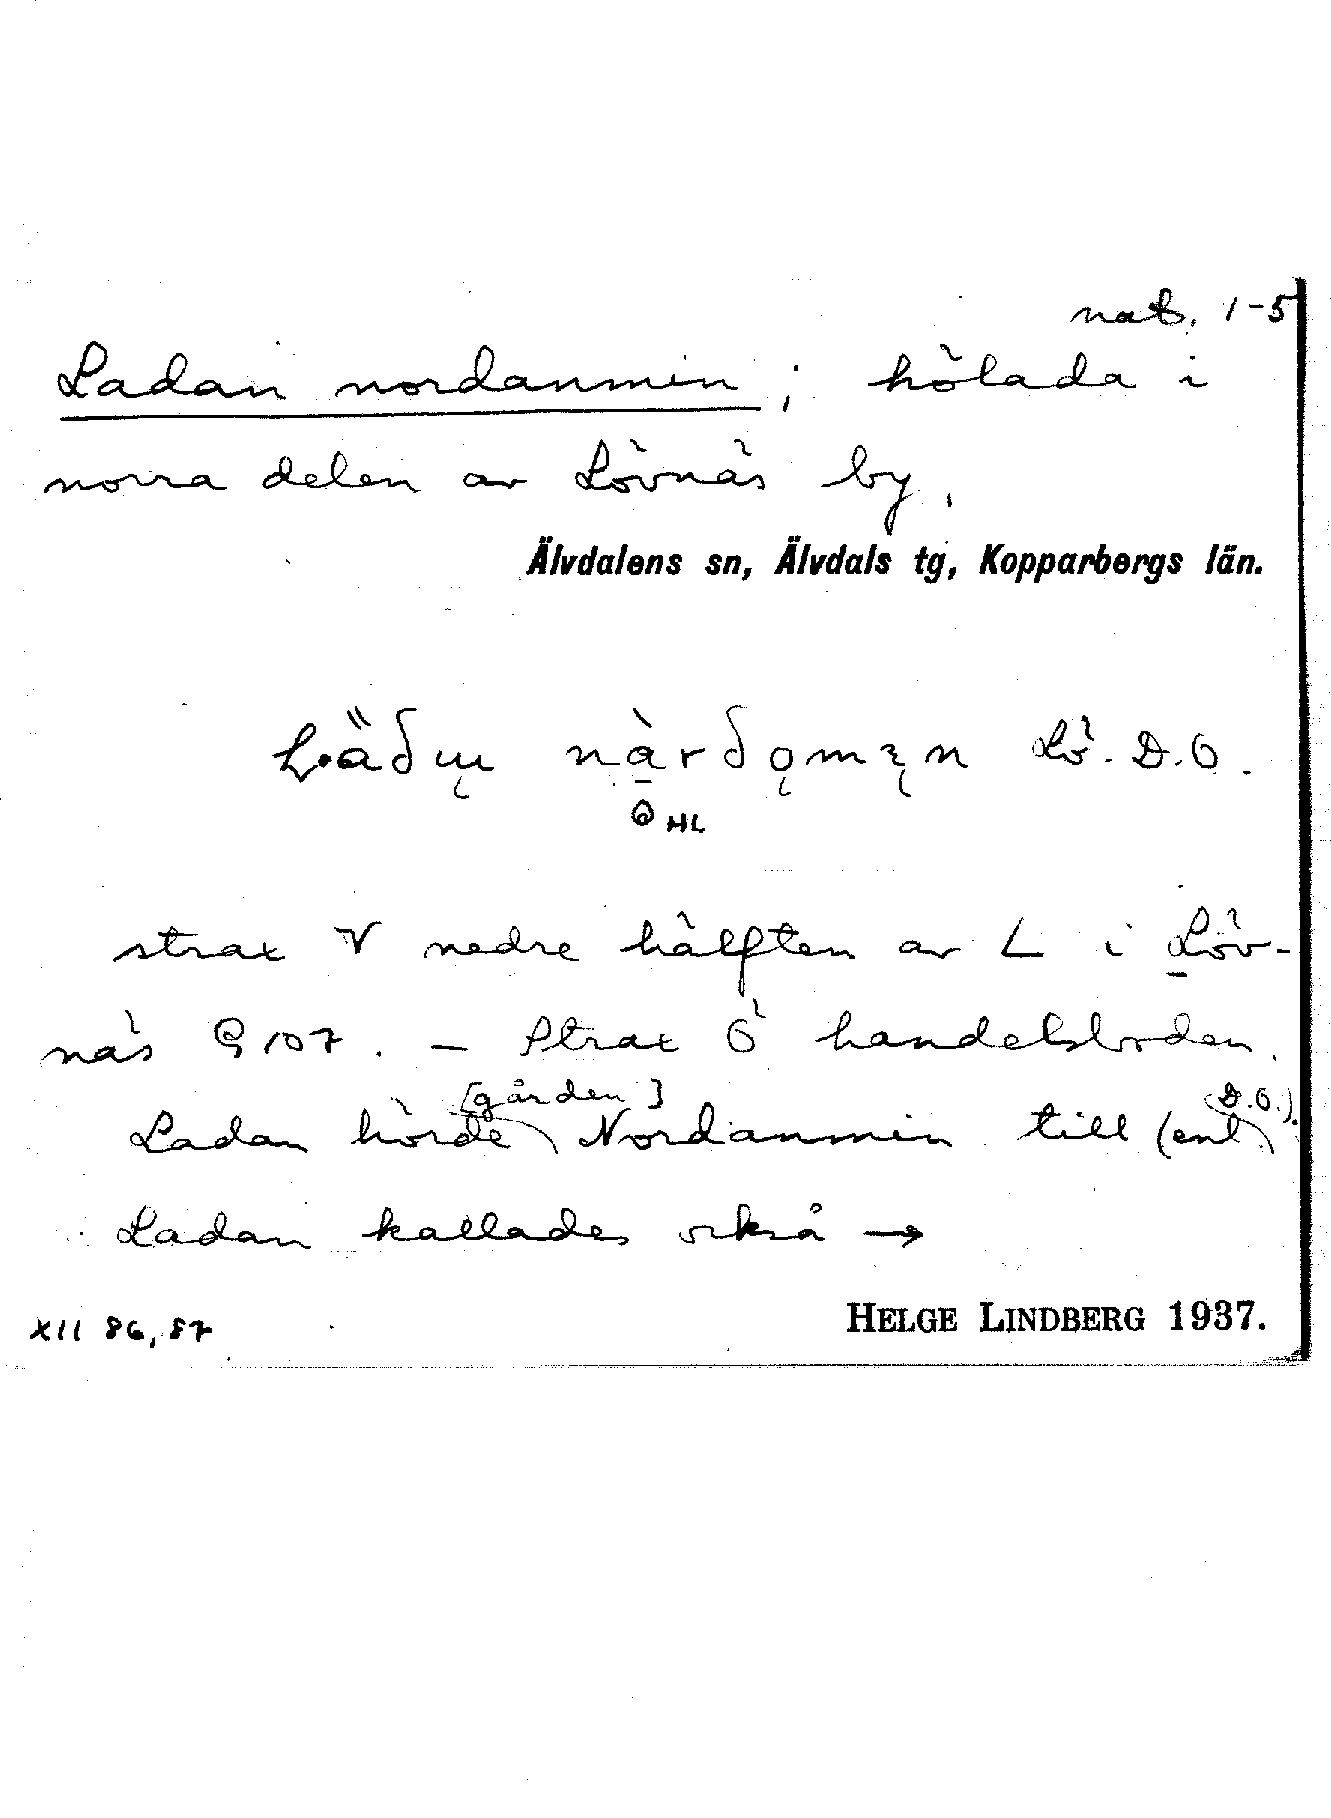 nat. 1-5
Ladan nordanmin; hölada i
norra delen av Lövnäs by.
Älvdalens sn, Älvdals tg, Kopparbergs län.
Lö. D.O.
HL
strax V nedre hälften av L i Löv-
näs G 107. – Strax Ö handelsboden.
[gården] (D.O.).
Ladan hörde Nordanmin till (enl
Ladan kallades också →
XII 86, 87 HELGE LINDBERG 1937.